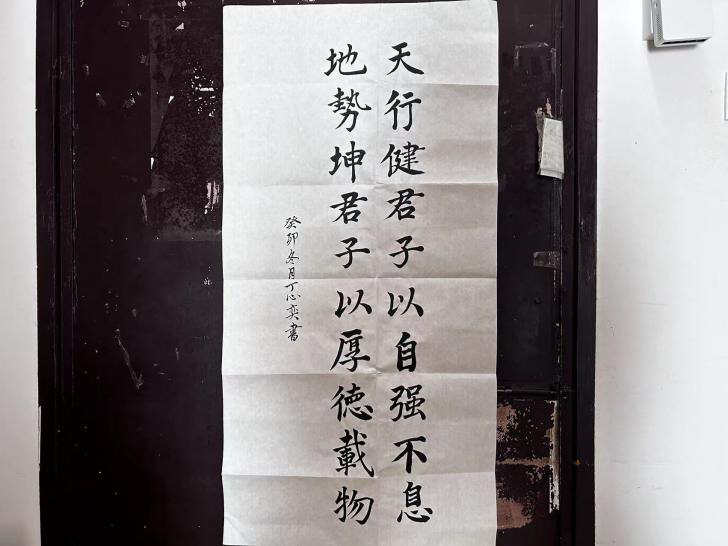 天行健君子以自强不息
地勢坤君子以厚德載物
癸卯冬月丁心奕書